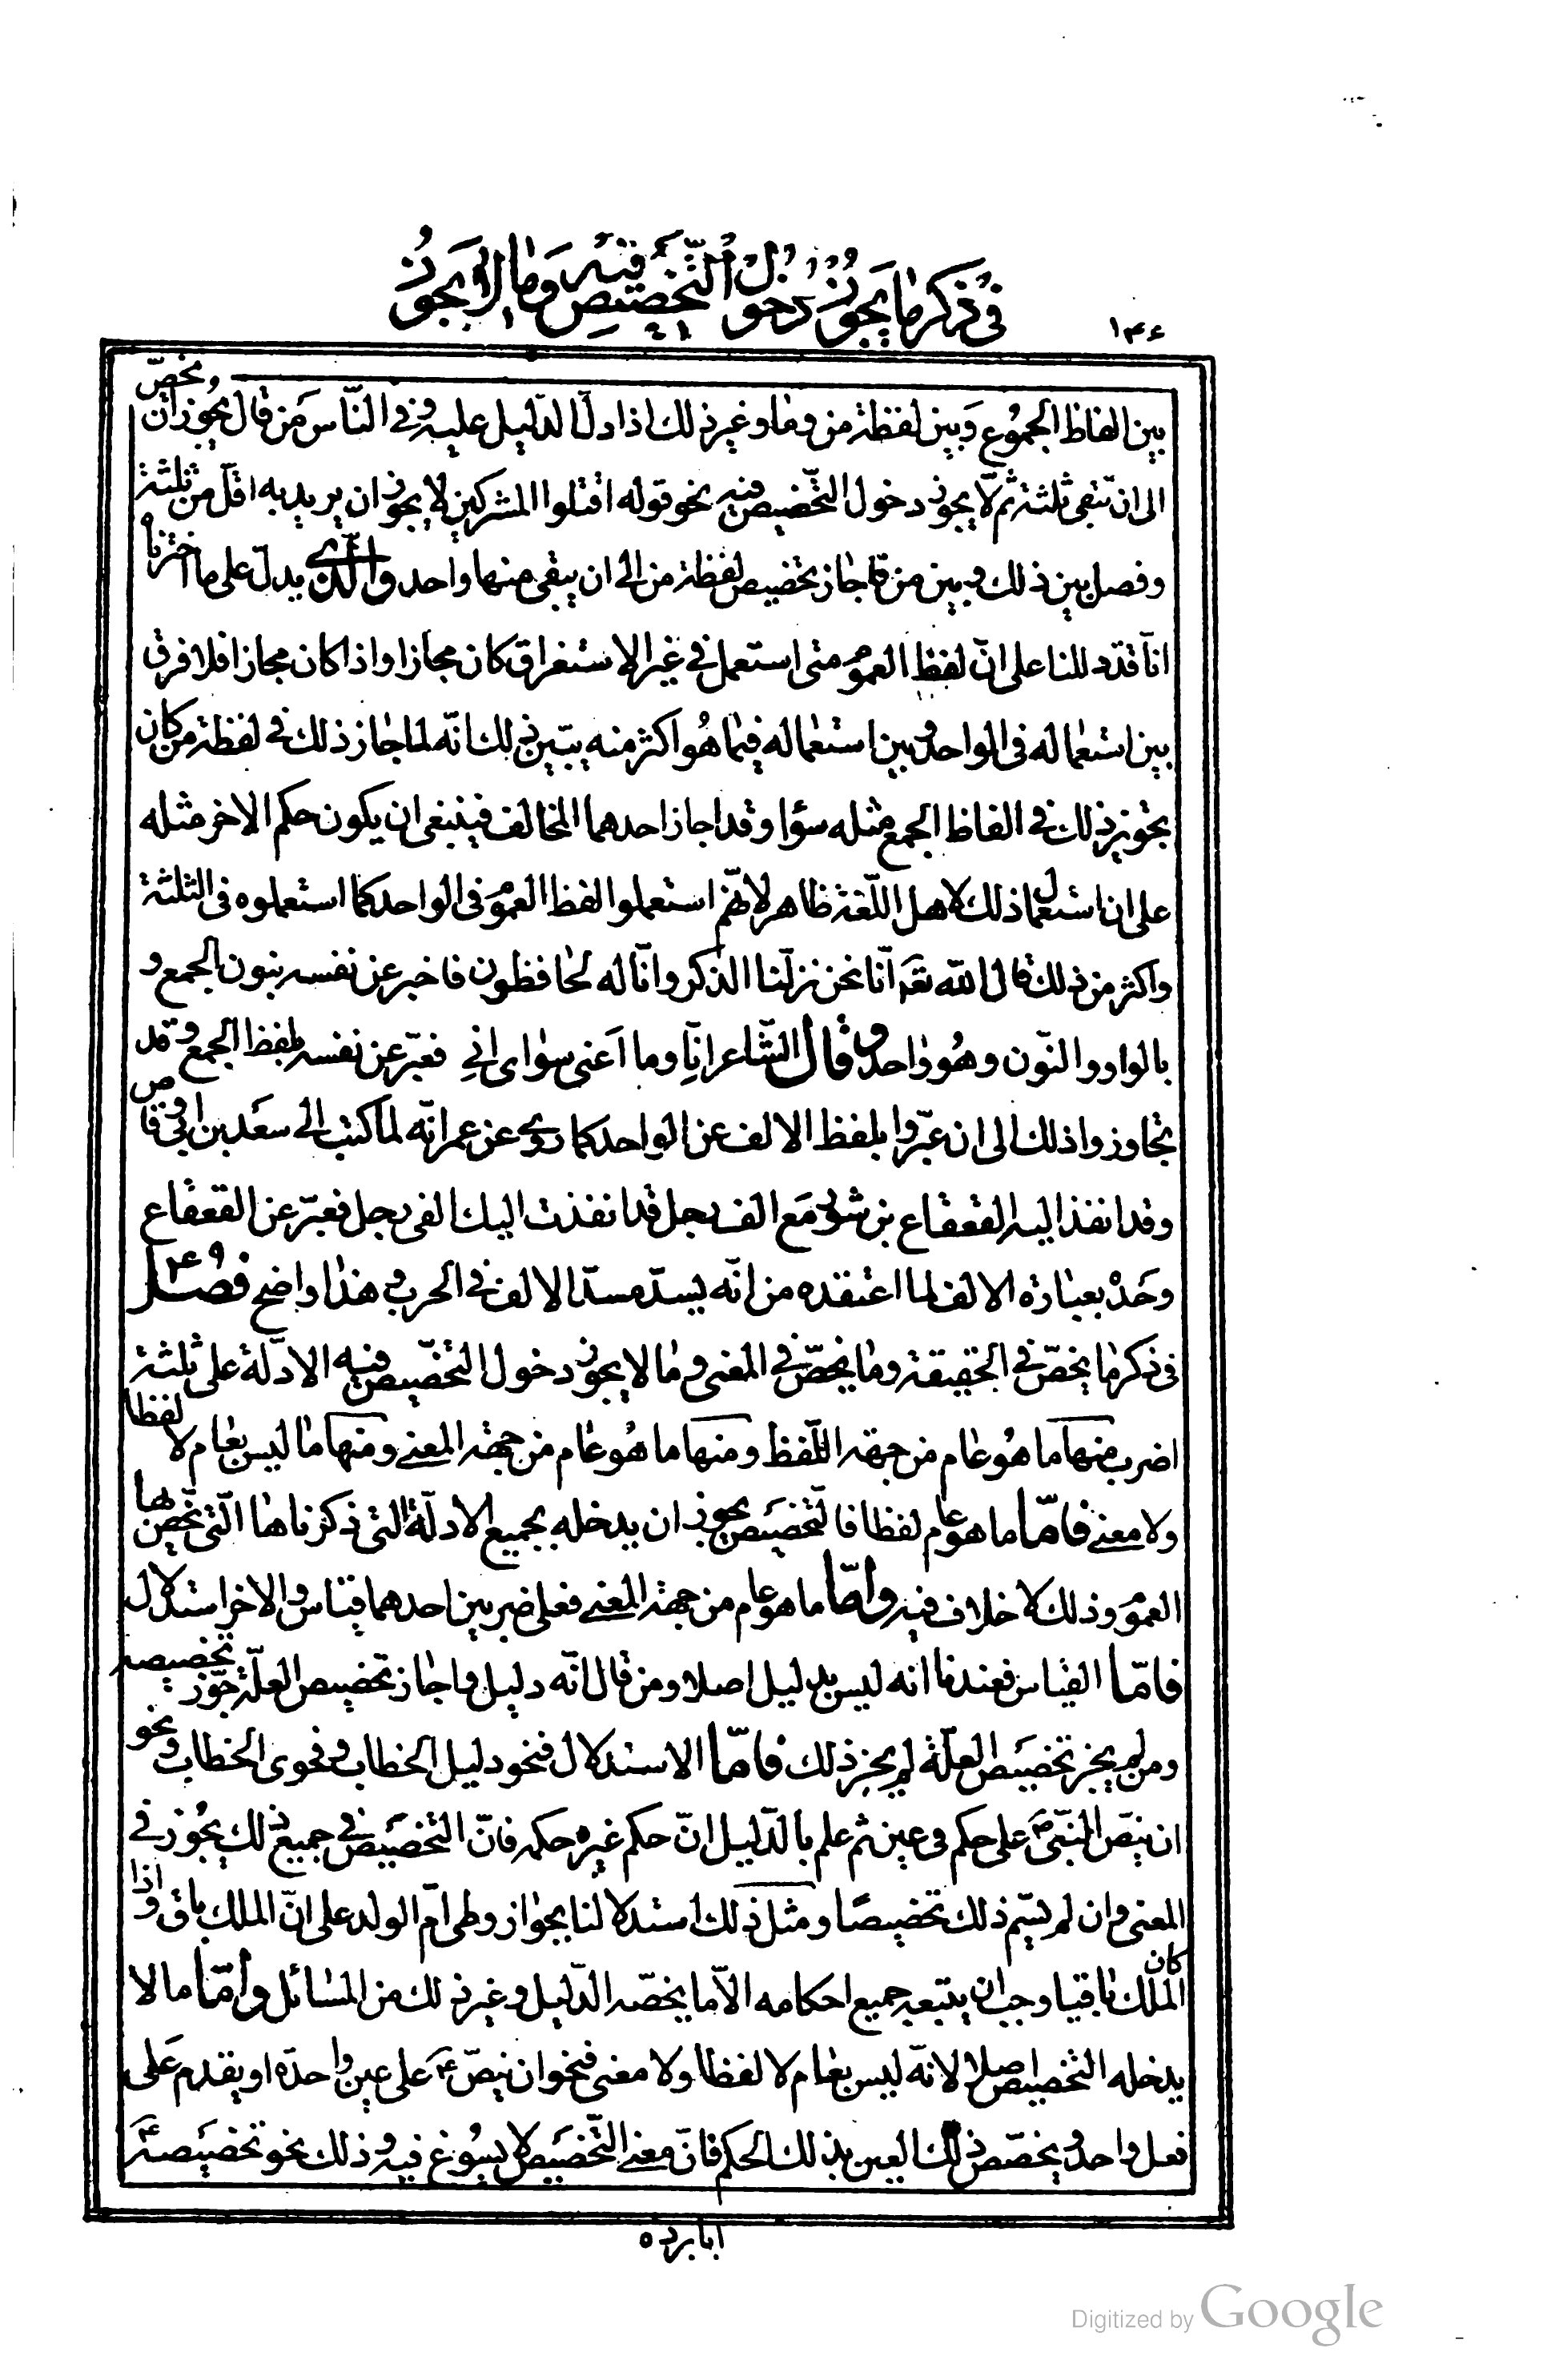 في ذكر ما يجوز دخول التخصيص فيه وما لا يجوز
١٤٤
بين الفاظ الجموع وبين لفظة من وما وغير ذلك اذا دلّ الدّليل عليه وفي النّاس من قال يجوز ان يخصّ
الى ان تبقى ثلثة ثم لا يجوز دخول التّخصيص فيه نحو قوله اقتلوا المشركين لا يجوز ان يريد به اقلّ من ثلثة
وفصل بين ذلك وبين من فاجاز تخصيص لفظة من الى ان يبقى منها واحد والّذي يدلّ على ما اخترناه
انّا قد دللنا على انّ لفظ العموم متى استعمل في غير الاستغراق كان مجازا واذا كان مجازا فلا فرق
بين استعماله في الواحد وبين استعماله فيما هو اكثر منه يبيّن ذلك انّه لما جاز ذلك في لفظة من كان
يجوز ذلك في الفاظ الجمع مثله سوٓا وقد اجاز احدهما المخالف فينبغي ان يكون حكم الاخر مثله
على ان استعمال ذلك لاهل اللّغة ظاهر لانّهم استعملوا لفظ العموم في الواحد كما استعملوه في الثلثة
واكثر من ذلك قال اللّه تعٓ انّا نحن نزلّنا الذّكر وانّا له لحافظون فاخبر عن نفسه بنون الجمع و
بالواو والنّون وهو واحد وقال الشّاعر انّا وما اعنى سواى انى فعبّر عن نفسه بلفظ الجمع وقد
تجاوزوا ذلك الى ان عبّروا بلفظ الالف عن الواحد كما روى عن عمر انّه لمّا كتب الى سعد بن ابي وقاص
وقد انفذ اليه القعقاع بن شور مع الف رجل قد انفذت اليك الفى رجل فعبّر عن القعقاع
وحده بعبارة الالف لما اعتقده من انّه يسدّ مسدّ الالف في الحرب وهذا واضح فصل
في ذكر ما يخصّ في الحقيقة وما يخصّ في المعنى وما لا يجوز دخول التخصيص فيه الادلّة على ثلثة
اضرب منها ما هو عام من جهة اللّفظ ومنها ما هو عام من جهة المعنى ومنها ما ليس بعام لا لفظا
ولا معنى فامّا ما هو عام لفظا فالتّخصيص يجوز ان يدخله بجميع الادلّة التى ذكرناها الّتى يخصّ بها
العموم وذلك لا خلاف فيه وامّا ما هو عام من جهة المعنى فعلى ضربين احدهما قياس والاخر استدلال
فامّا القياس فعندنا انه ليس بدليل اصلا ومن قال انّه دليل واجاز تخصيص العلّة جوّز تخصيصه
ومن لم يجز تخصيص العلّة لم يجز ذلك فامّا الاستدلال فنحو دليل الخطاب وفحوى الخطاب ونحو
ان ينصّ النّبيّ ص على حكم في عين ثم علم بالدّليل انّ حكم غيره حكمه فانّ التّخصيص في جميع ذلك يجوز في
المعنى وان لم يسمّ ذلك تخصيصًا ومثل ذلك استدلالنا بجواز وطى امّ الولد على انّ الملك باق واذا كان
الملك باقيا وجب ان يتبعه جميع احكامه الّا ما يخصّه الدّليل وغير ذلك من المسائل وامّا ما لا
يدخله التخصيص اصلا لانّه ليس بعام لا لفظا ولا معنى فنحو ان ينصّ ع على عين واحدة او يقدم على
فعل واحد ويخصّص ذلك العين بذلك الحكم فانّ معنى التّخصيص لا يسوغ فيه وذلك نحو تخصيصه ع
ابا برده
Digitized by Google